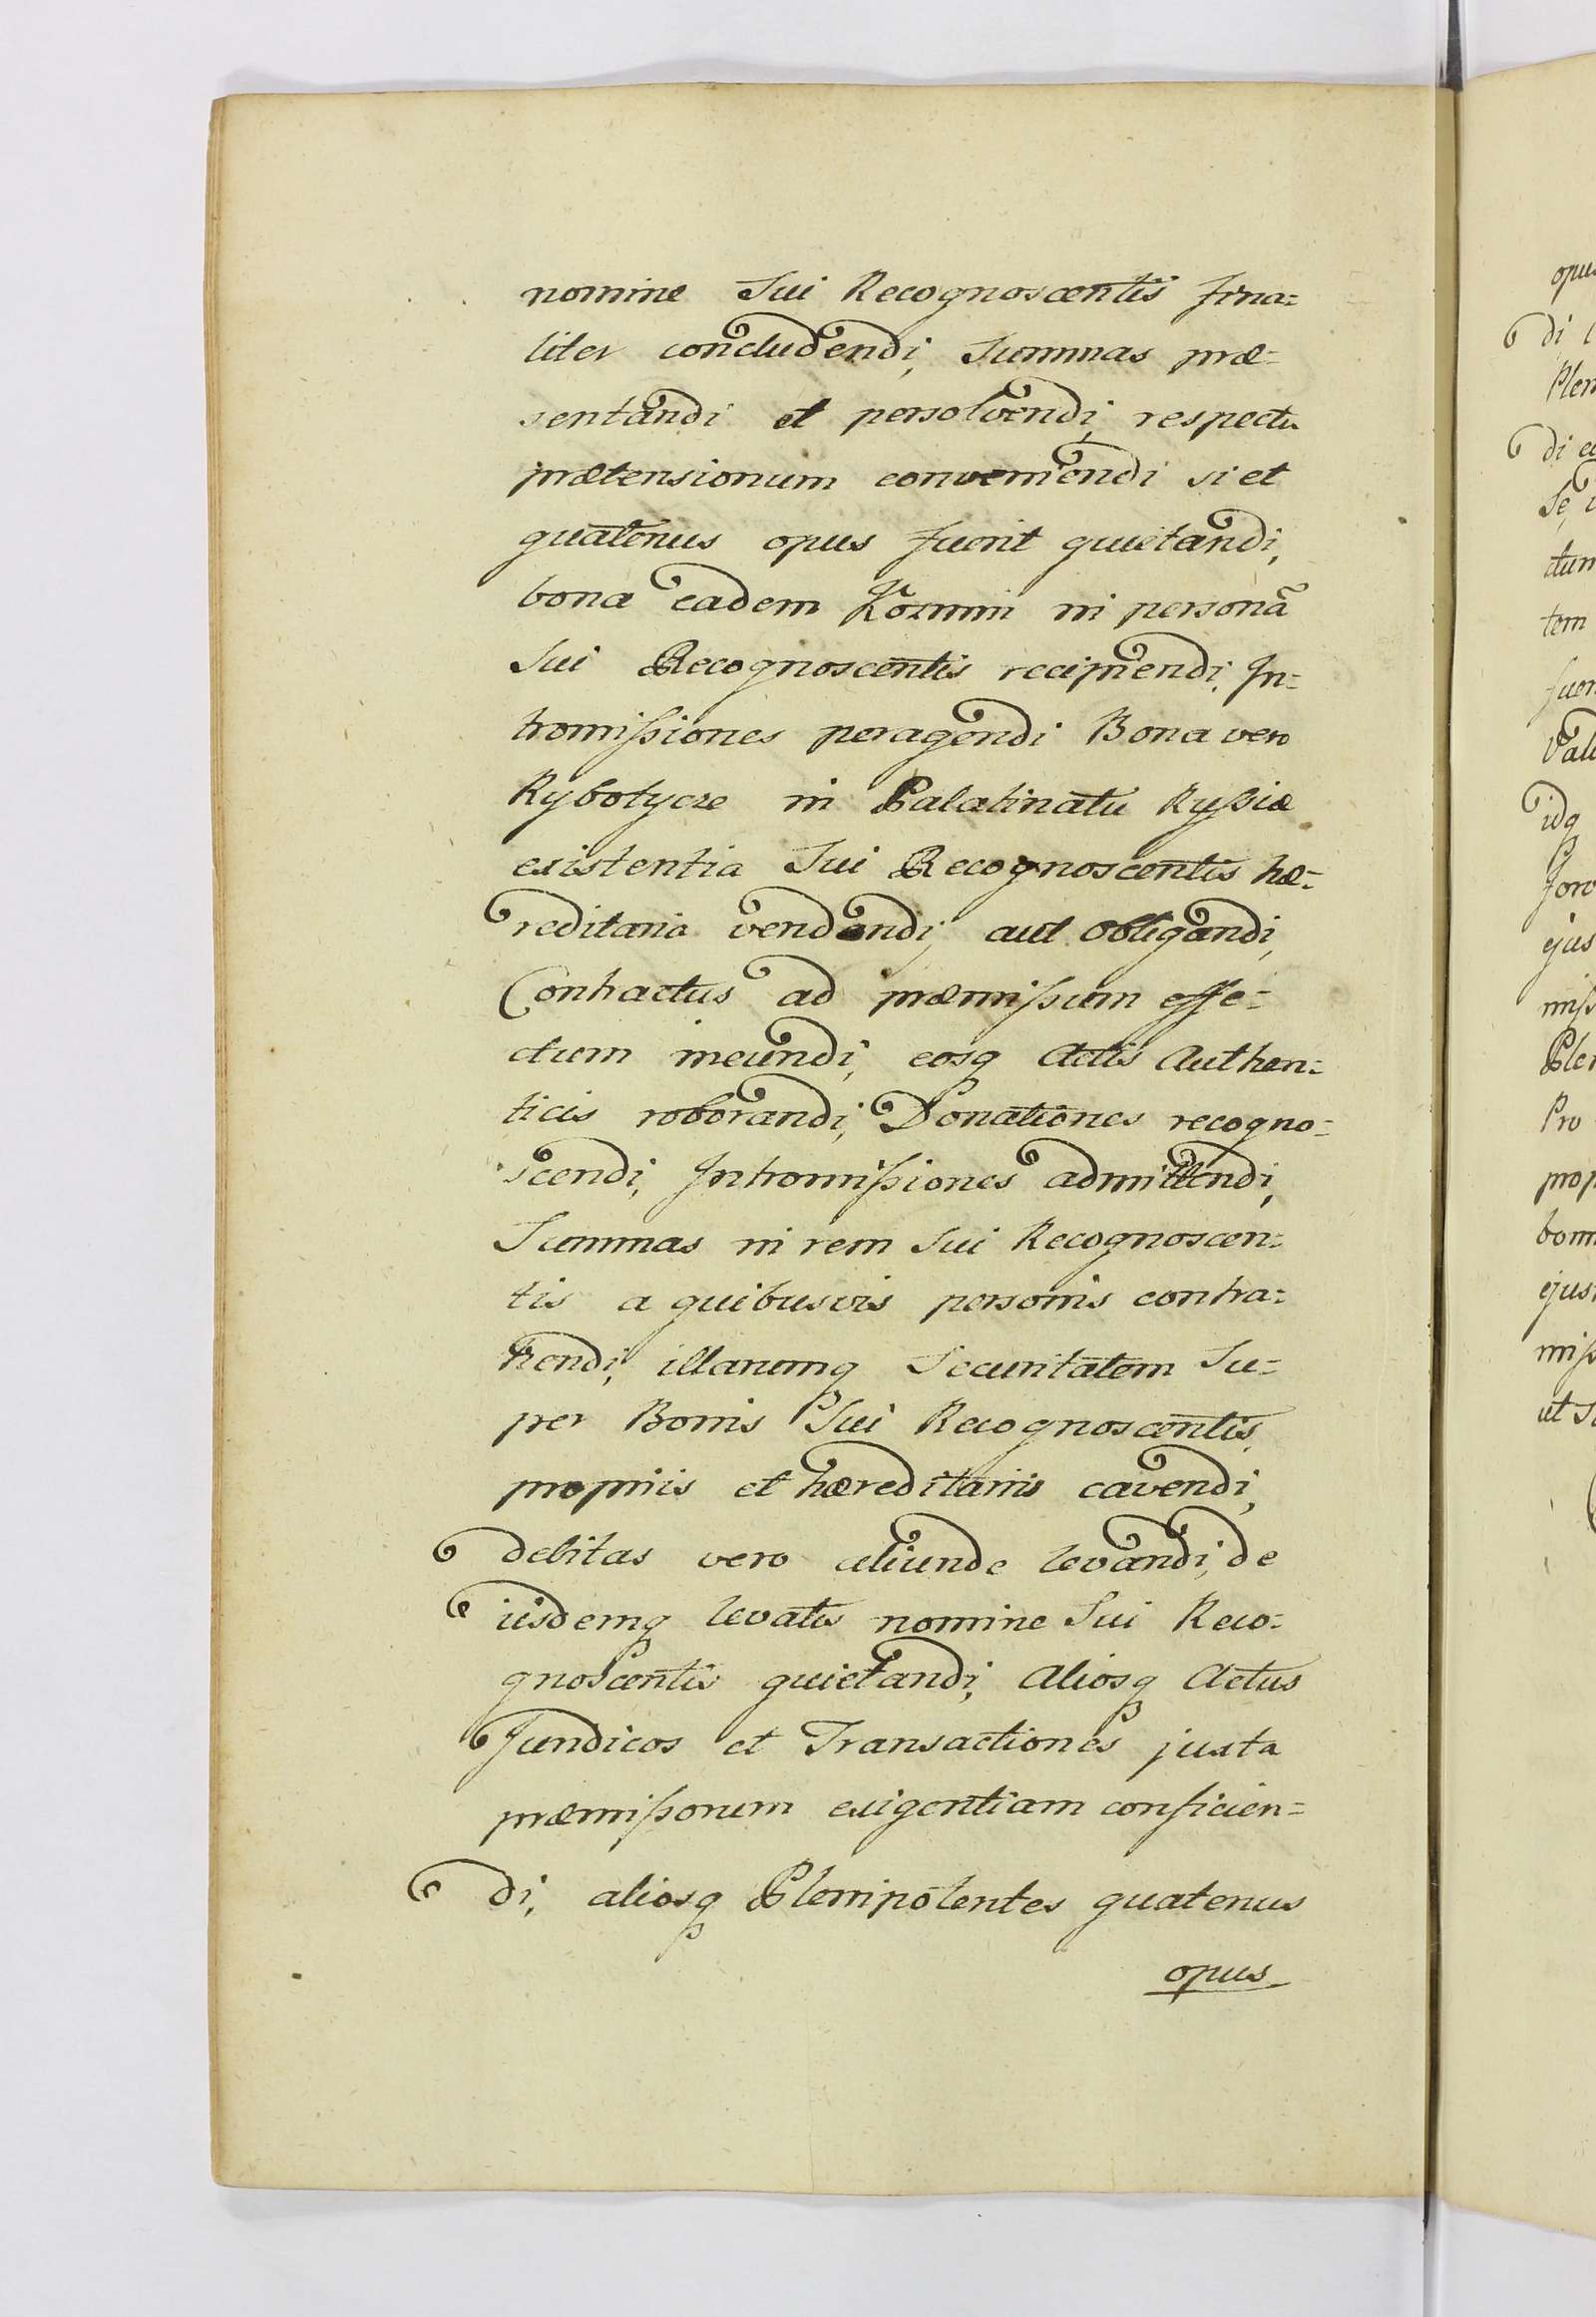 nomine Sui Recognoscentis fina=
liter concludendi, Summas præ=
sentandi et persolvendi, respectu
prætensionum conveniendi si et
quatenus opus fuerit quietandi,
bona eadem Kozmin in personã
Sui Recognoscentis recipiendi, In=
tromissiones peragendi Bona vero
Rybotycze in Palatinatu Russiæ
existentia Sui Recognoscentis hæ=
reditaria vendendi, aut obligandi,
Contractus ad præmissum effe=
ctum ineundi, eosq Actis Authen=
ticis roborandi, Donationes recogno=
scendi, Intromissiones admittendi,
Summas in rem Sui Recognoscen=
tis a quibusvis personis contra=
hendi, illarumq Securitatem Su=
per Bonis Sui Recognoscentis
propriis et hæreditariis cavendi,
debitas vero aliunde levandi, de
iisdemq levatis nomine Sui Reco=
gnoscentis quietandi, Aliosq Actus
Juridicos et Transactiones juxta
præmissorum exigentiam conficien=
di, aliosq Plenipotentes quatenus
opus
opus
di
di
Se
ctum
tem
idq
ejus
Pro
ut